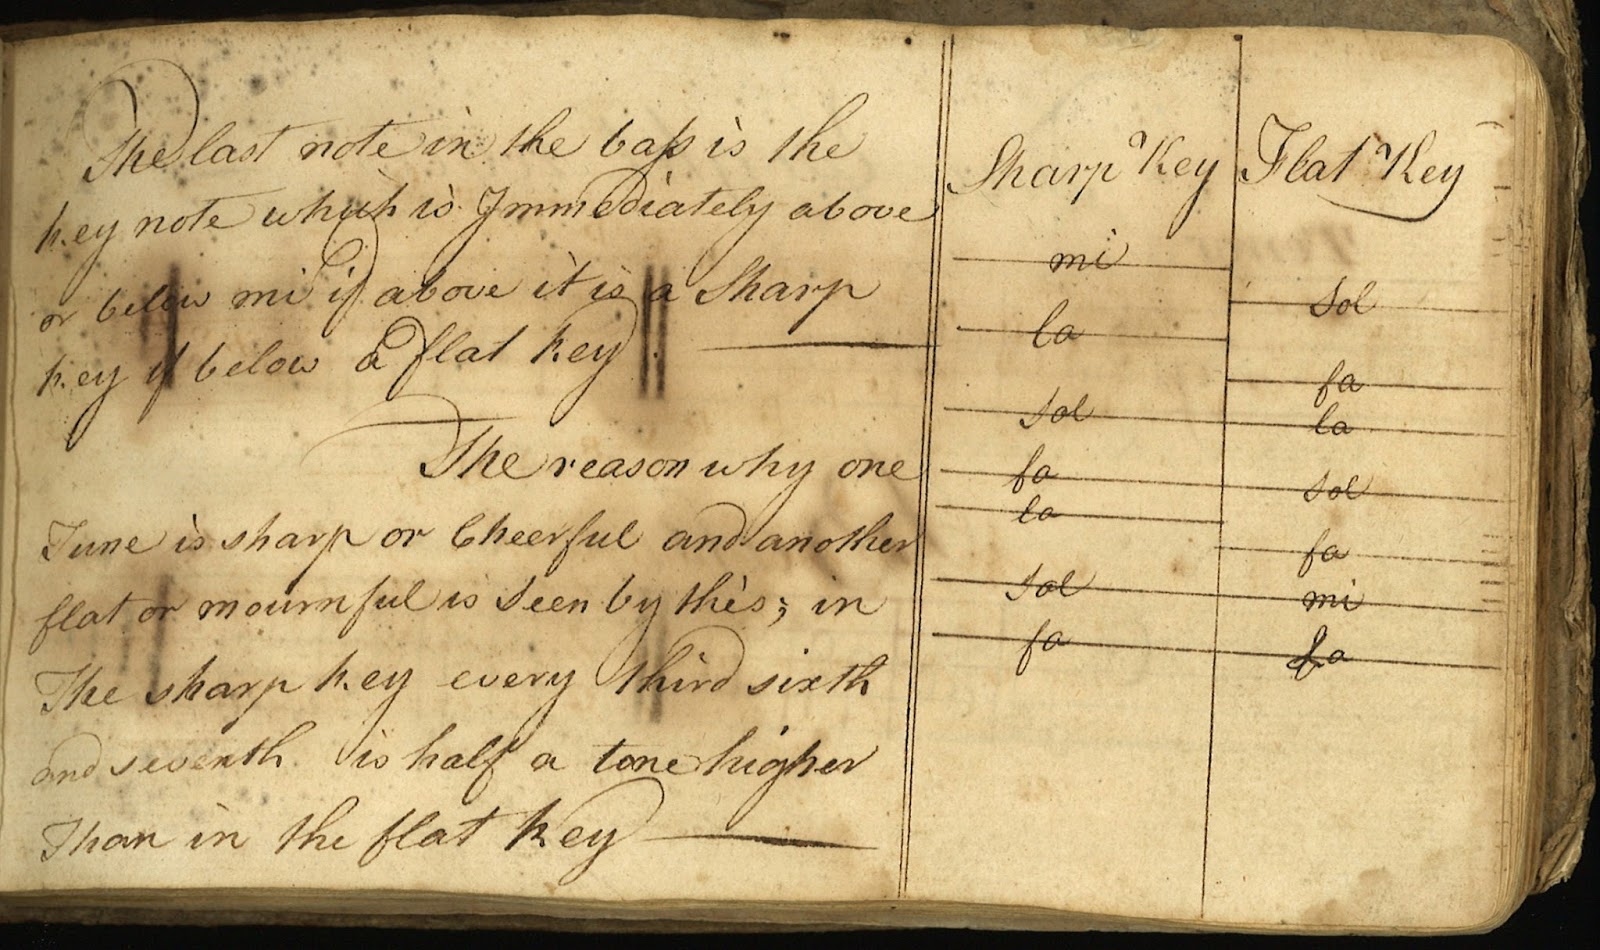 The last note in the baſs is the
key note which is Immediately above
or below mi if above it is a Sharp
key if below a flat key
The reason why one
Tune is sharp or Cheerful and another
flat or mournful is seen by this; in
The sharp key every third sixth
and seventh is half a tone higher
Than in the flat key
Sharp Key
mi
la
sol
fa
la
sol
fa
Flat Key
sol
fa
la
sol
fa
mi
la